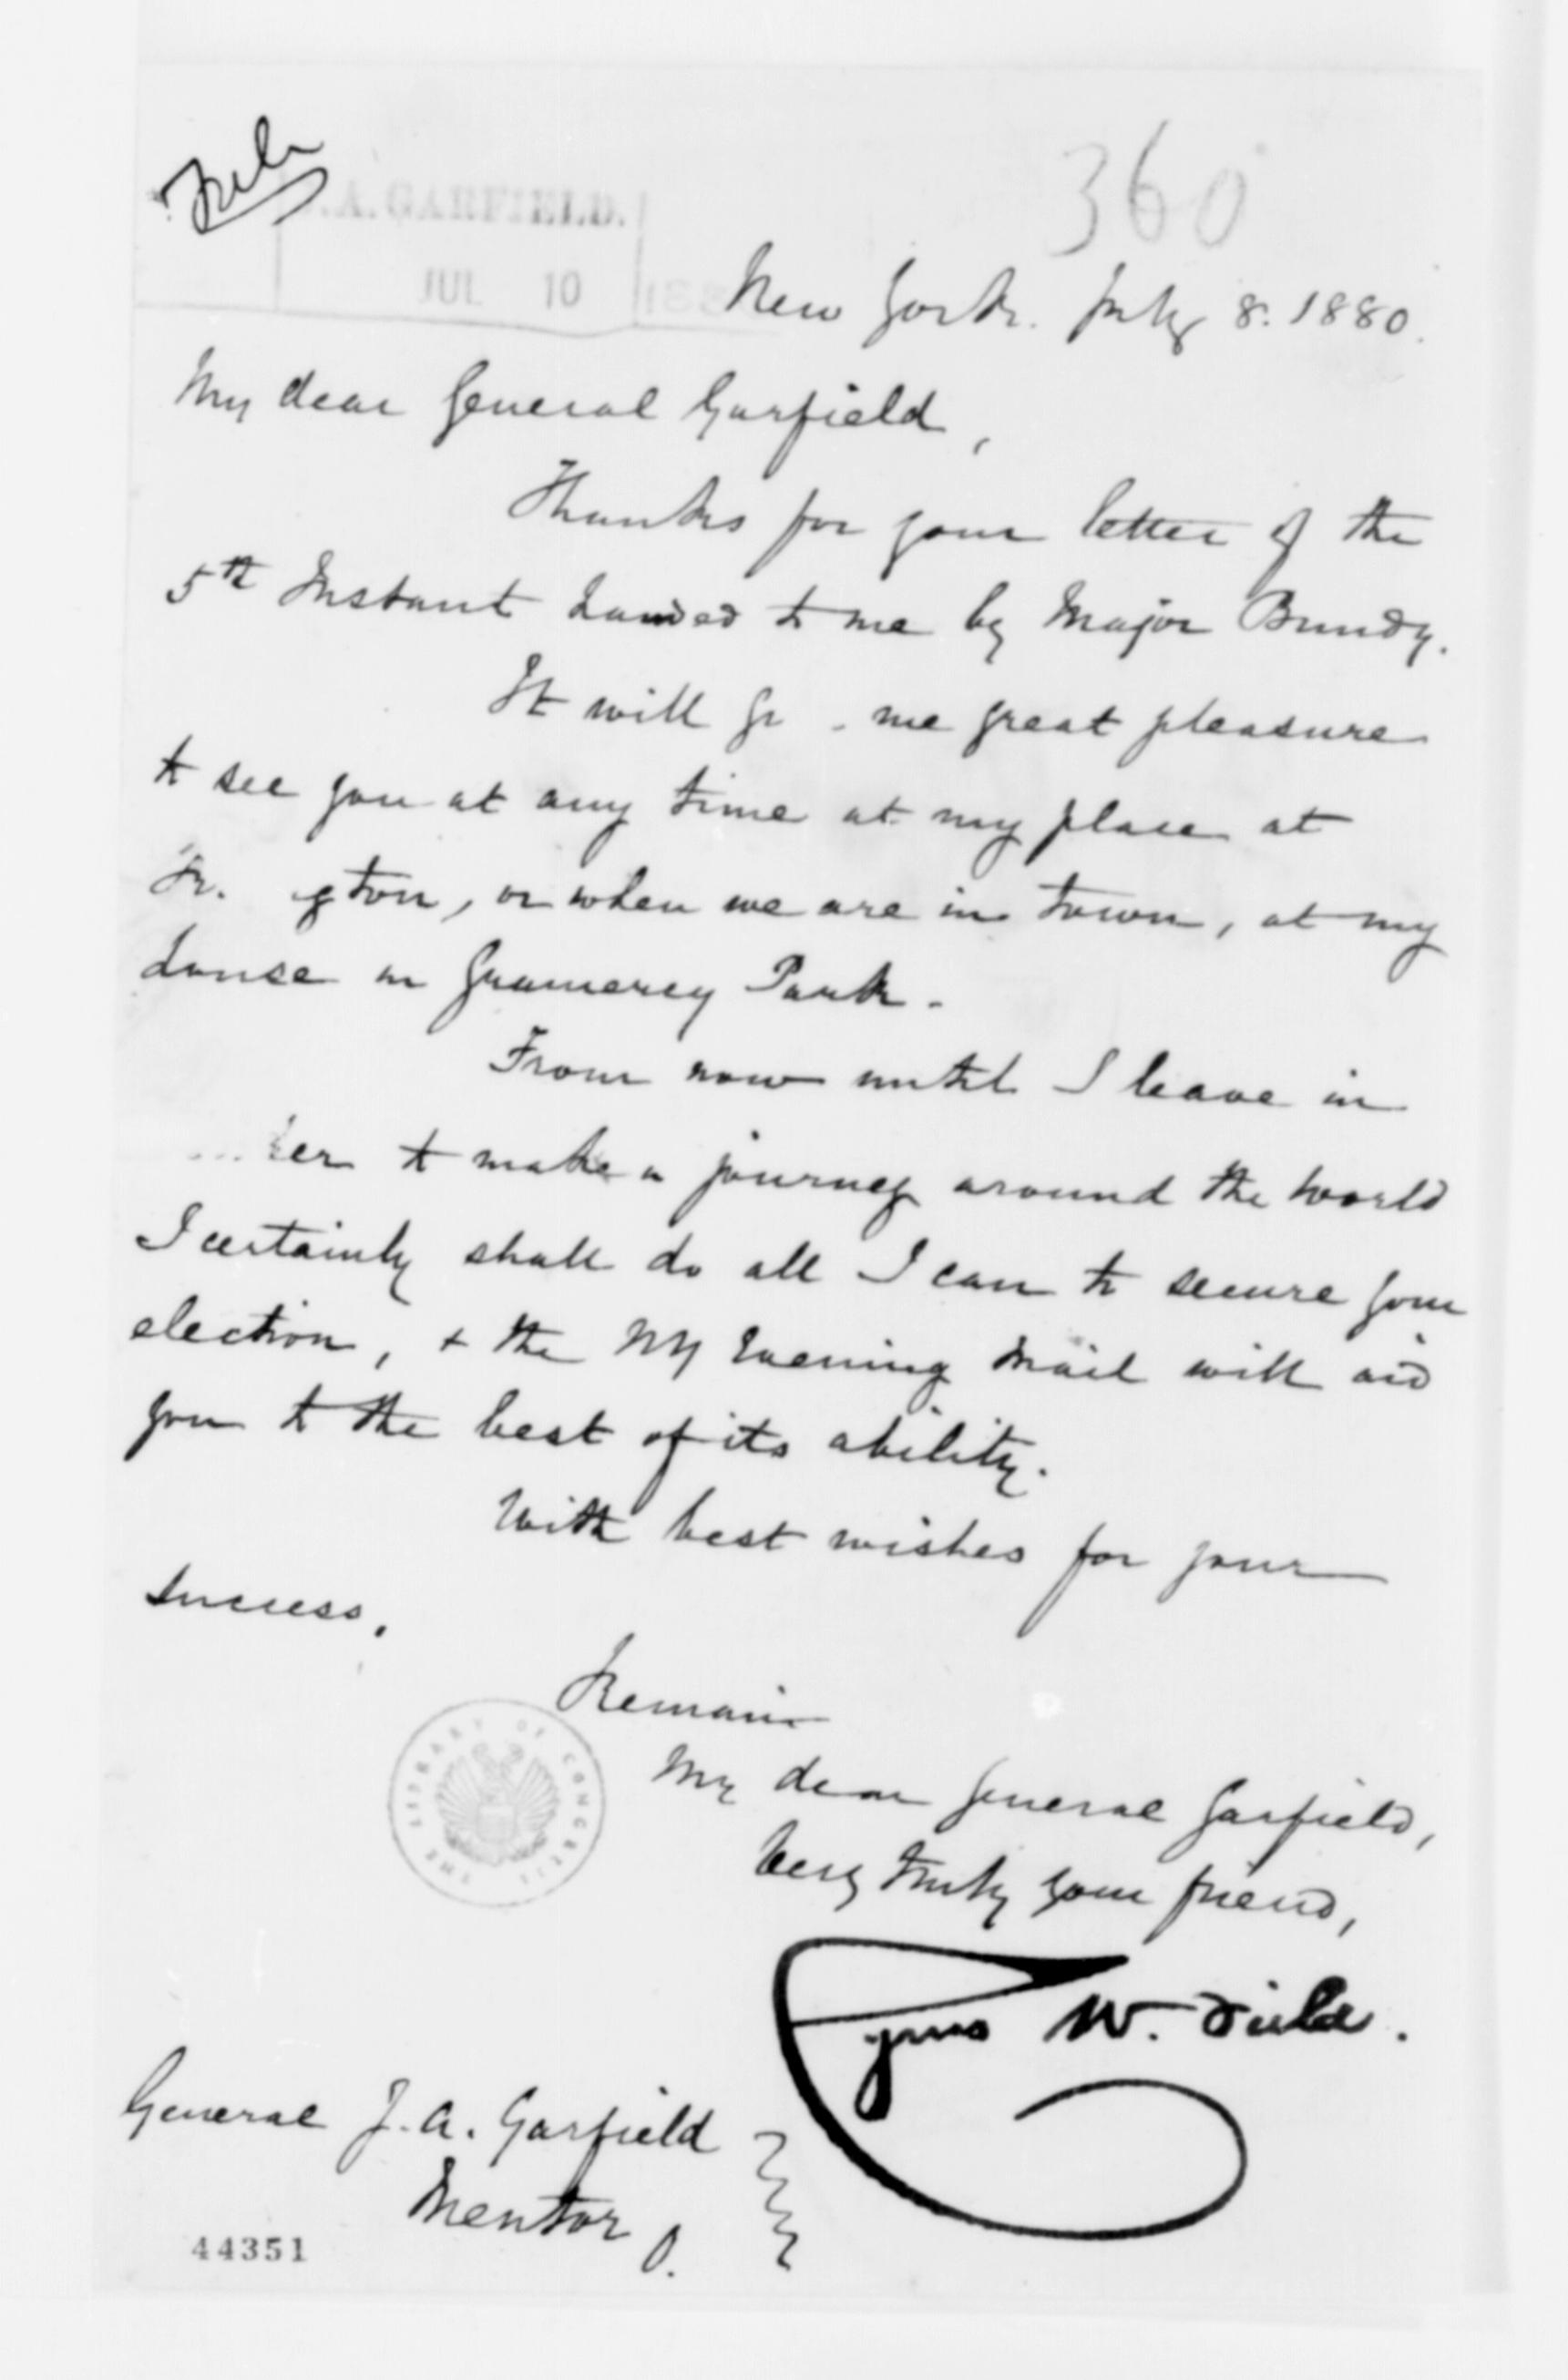 J.A. GARFIELD.
360
JUL 10 188
New York. July 8. 1880.
My dear General Garfield,
Thanks for your letter of the
5th Instant handed to me by Major Bundy.
It will me great pleasure
to see you at any time at my place at
or when we are in town, at my
house in Gramercy Park.
From now until I leave in
to make a journey around the world
I certainly shall do all I can to secure your
election, + the NY Evening Mail will aid
you to the best of its ability.
With best wishes for your
success,
Remain
My dear General Garfield,
Very truly your friend,
Cyrus W. Field.
General J. A. Garfield
Mentor O.
THE LIBRARY OF CONGRESS
44351